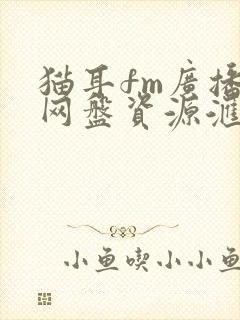 猫耳fm廣播
网盤資源滙
小鱼喫小小鱼